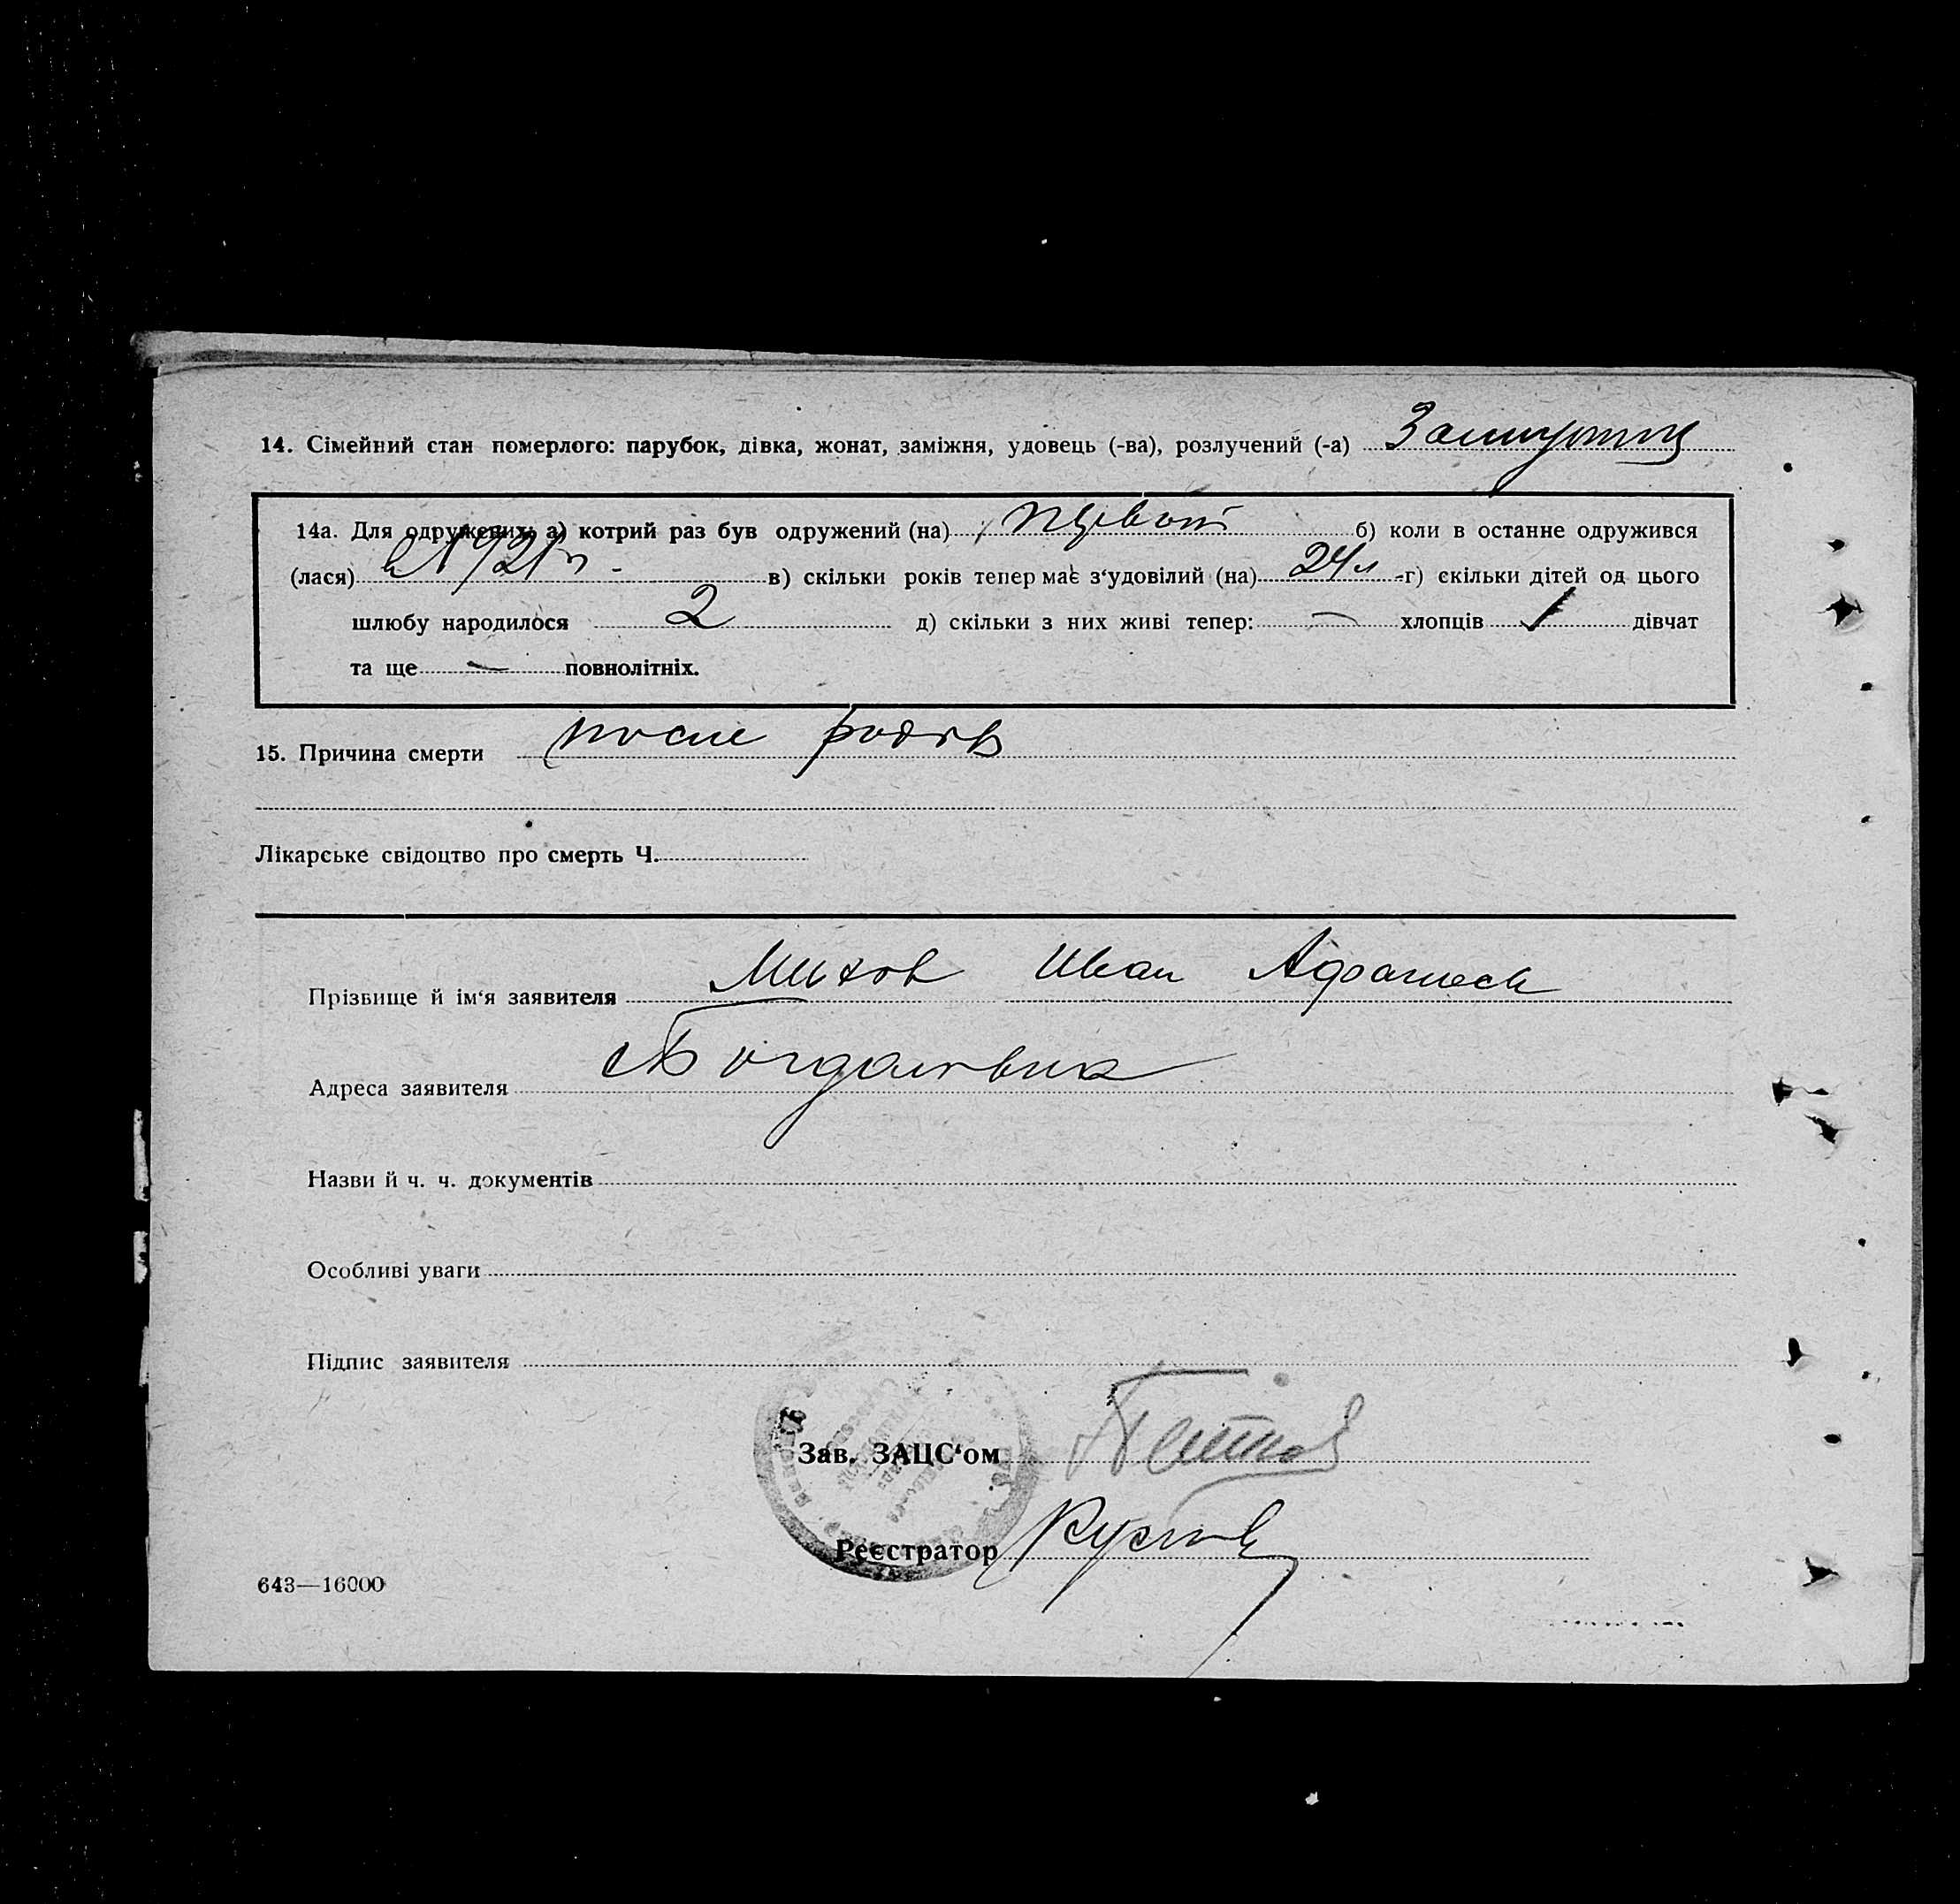 14. Сімейний стан померлого: парубок, дівка, жонат, заміжня, удовець (-ва), розлучений (-а)
14а. Для одружених: а) котрий раз був одружений (на) первой б) коли в останне одружився
(лася) в 1921 г в) скільки років тепер має з‘удовілий (на) 24 л г) скільки дітей од цього
шлюбу народилося 2 д) скільки з них живі тепер: — хлопців 1 дівчат
та ще — повнолітніх.
15. Причина смерти после родов
Лікарське свідоцтво про смерть Ч.
Прізвище й ім‘я заявителя Иван
Адреса заявителя
Назви й ч. ч. документів
Особливі уваги
Підпис заявителя
Зав. ЗАЦС‘ом
Реєстратор
643—16000